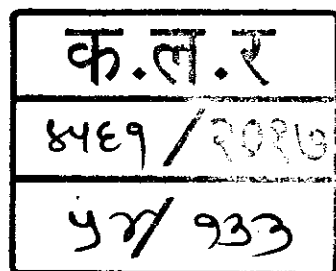 क.ल.र
४५६१/२०१७
५४/१३३